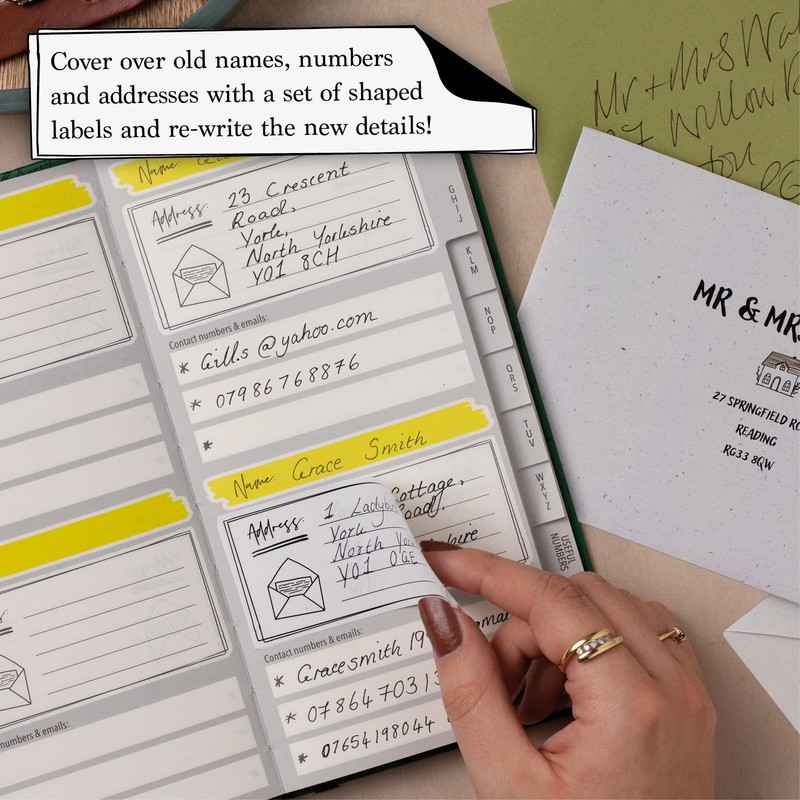 Cover over old names, numbers
and addresses with a set of shaped
labels and re-write the new details!
Mr + Mrs
Willow
Name:
Address:
23 Crescent
Road,
York,
North Yorkshire
YO1 8CH
Contact numbers & emails:
* Gill.s @yahoo.com
* 07986768876
*
Name: Grace Smith
Address:
1
Cottage,
York
North
YO1
Contact numbers & emails:
* Gracesmith19
* 078647031
* 07654198044
numbers & emails:
G H I J
K L M
N O P
Q R S
T U V
W X Y Z
USEFUL
NUMBERS
MR & MRS
27 SPRINGFIELD
READING
RG33 8QW